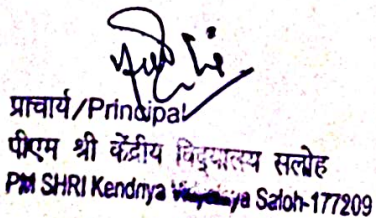 प्राचार्य/Principal
पीएम श्री केंद्रीय विद्यालय सलोह
PM SHRI Kendriya Vidyalaya Saloh-177209